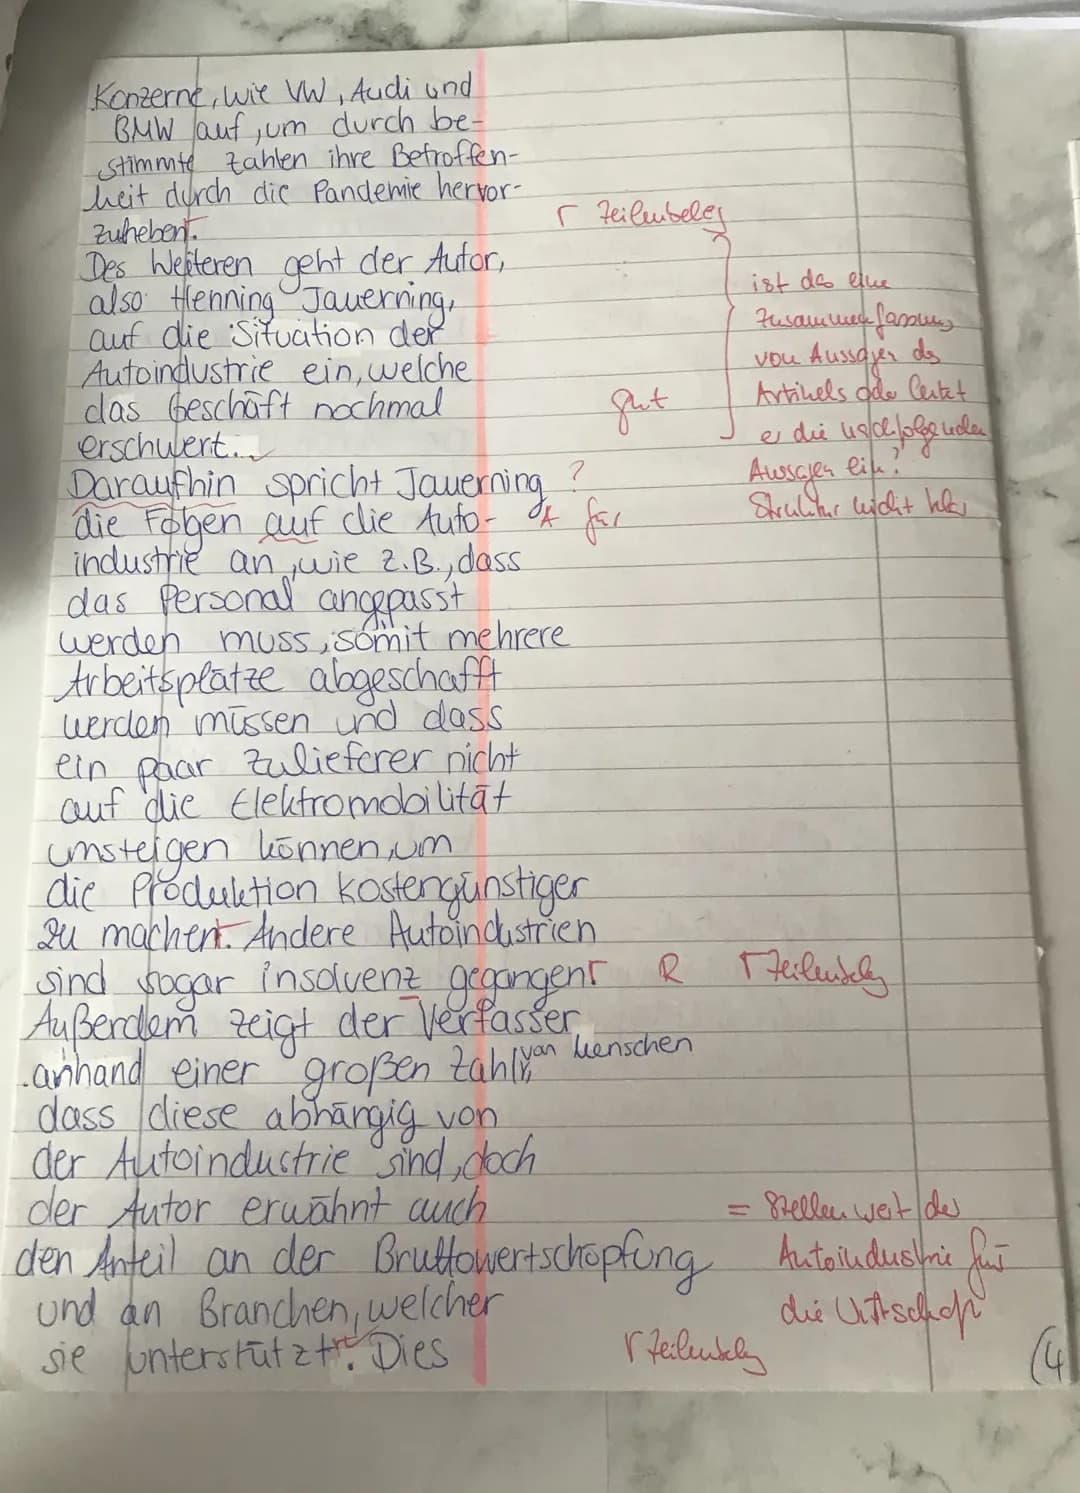 Konzerne, wie VW, Audi und
BMW auf, um durch be-
stimmte Zahlen ihre Betroffen-
heit durch die Pandemie hervor-
zuheben.
Γ Zeilenbeleg
Des Weiteren geht der Autor,
also Henning Jauerning,
auf die Situation der
Autoindustrie ein, welche
das Geschäft nochmal
erschwert.
gut
ist das eine
Zusammenfassung
von Aussagen des
Artikels oder leitet
er die nachfolgenden
Aussagen ein?
Struktur nicht klar
Daraufhin spricht Jauerning ?
die Folgen auf die Auto- A für
industrie an, wie z.B., dass
das Personal angepasst
werden muss, somit mehrere
Arbeitsplätze abgeschafft
werden müssen und dass
ein paar Zulieferer nicht
auf die Elektromobilität
umsteigen können, um
die Produktion kostengünstiger
zu machen. Andere Autoindustrien
sind sogar insolvenz gegangen Γ R Γ Zeilenbeleg
Außerdem zeigt der Verfasser
anhand einer großen Zahl von Menschen
dass diese abhängig von
der Autoindustrie sind, doch
der Autor erwähnt auch
den Anteil an der Bruttowertschöpfung
und an Branchen, welcher
sie unterstützt. Dies
= Stellenwert der
Autoindustrie für
die Wirtschaft
Γ Zeilenbeleg
(4